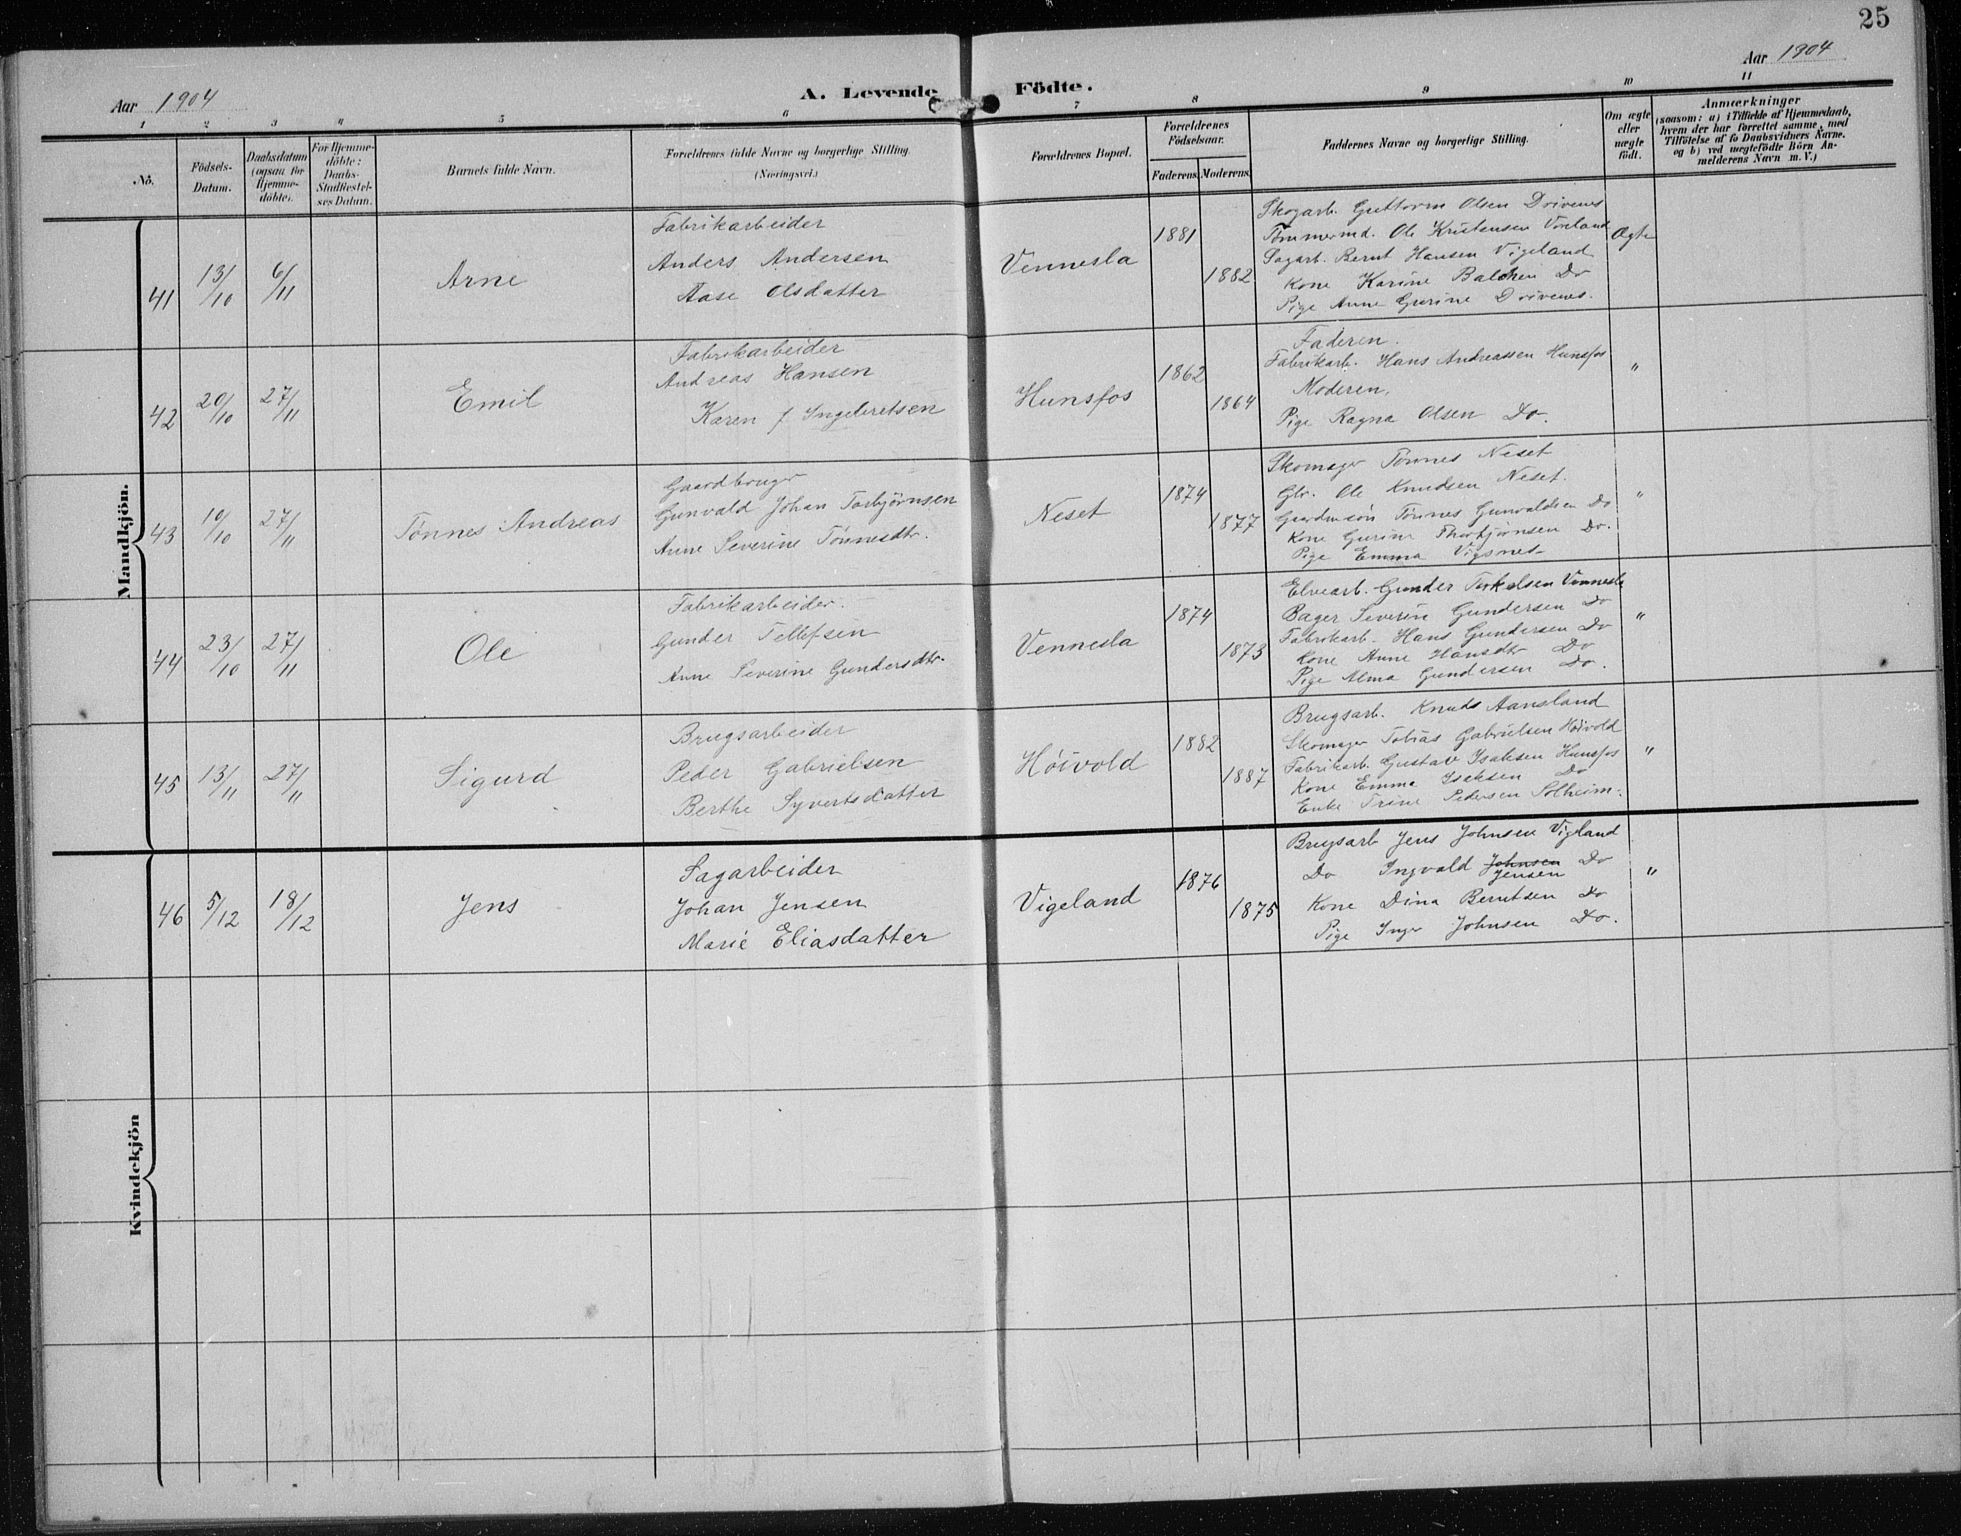 25
Aar 1904
A. Levende Födte.
Aar 1904
1 2 3 4 5 6 7 8 9 10 11
No.
Födsels-Datum.
Daabsdatum (ogsaa for Hjemme-döbte).
For Hjemme-döbte: Daabs-Stadfæstel-ses Datum.
Barnets fulde Navn.
Forældrenes fulde Navne og borgerlige Stilling.
(Næringsvei.)
Forældrenes Bopæl.
Forældrenes Födselsaar.
Faderens. Moderens.
Faddernes Navne og borgerlige Stilling.
Om ægte eller uægte födt.
Anmærkninger
(saasom: a) i Tilfælde af Hjemmedaab,
hvem der har forrettet samme, med
Tilföielse af to Daabsvidners Navne.
og b) ved uægtefödte Börn An-
melderens Navn m. V.)
Mandkjön.
41 13/10 6/11 Arne
Fabrikarbeider
Anders Andersen
Aase Olsdatter
Vennesla 1881 1882
Skogarb. Guttorm Olsen Drivenes
Tømmermd. Ole Kristensen Vonland
Sagarb. Bernt Hansen Vigeland
Kone Karine Balchen Do
Pige Anne Gurine Drivenes.
Ægte
42 20/10 27/11 Emil
Fabrikarbeider
Andreas Hansen
Karen f Ingebretsen
Hunsfos 1862 1864
Faderen.
Fabrikarb. Hans Andreassen Hunsfos
Moderen.
Pige Ragna Olsen Do.
"
43 10/10 27/11 Tønnes Andreas
Gaardbruger
Gunvald Johan Torbjørnsen
Anne Severine Tønnesdtr.
Neset 1874 1877
Skomager Tønnes Neset
Gbr. Ole Knudsen Neset.
Gaardmsøn Tønnes Gunvaldsen Do
Kone Gurine Thorbjørnsen Do.
Pige Emma Vigsnes
"
44 23/10 27/11 Ole
Fabrikarbeider.
Gunder Tellefsen
Anne Severine Gundersdtr.
Vennesla 1874 1873
Elvearb. Gunder Terkelsen Vennesla
Bager Severin Gundersen Do
Fabrikarb. Hans Gundersen Do
Kone Anne Hansdtr Do
Pige Alma Gundersen Do.
"
45 13/11 27/11 Sigurd
Brugsarbeider
Peder Gabrielsen
Berthe Syvertsdatter
Høivold 1882 1887
Brugsarb. Knuds Aansland
Skomager Tobias Gabrielsen Høivold
Fabrikarb. Gustav Isaksen Hunsfos
Kone Emma Isaksen Do
Enke Trine Pedersen Solheim.
"
46 5/12 18/12 Jens
Sagarbeider
Johan Jensen
Marie Eliasdatter
Vigeland 1876 1875
Brugsarb Jens Johnsen Vigeland
Do Ingvald Johnsen Do
Jensen
Kone Dina Berntsen Do
Pige Inger Johnsen Do.
"
Kvindekjön